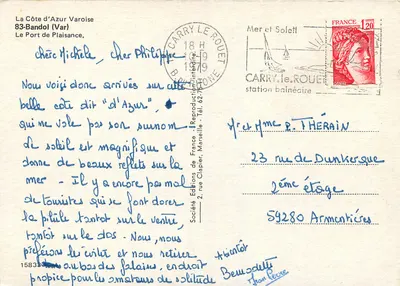 La Côte d'Azur Varoise
83-Bandol (Var)
Le Port de Plaisance,
chère Michèle, cher Philippe
Nous voici donc arrivés sur cette
belle côte dit "d'Azur",
qui ne vole pas son surnom.
Le soleil est magnifique et
donne de beaux reflets sur la
mer - Il y a encore pas mal
de touristes qui se font dorer
la pilule tantôt sur le ventre,
tantôt sur le dos - Nous, nous
préférons les éviter et nous retirer
au bord des falaises, endroit
propice pour les amateurs de solitude
A bientôt
Bernadette
Jean Pierre
1583
Société Editions de France - Reproduction
2, rue Clapier, Marseille - Tél. 62-
CARRY LE ROUET
18 H
-9
1979
Mer et Soleil
CARRY.le.ROUET
station balnéaire
FRANCE
1,20
Mr et Mme R. THÉRAIN
23 rue de Dunkerque
2ème étage
59280 Armentières